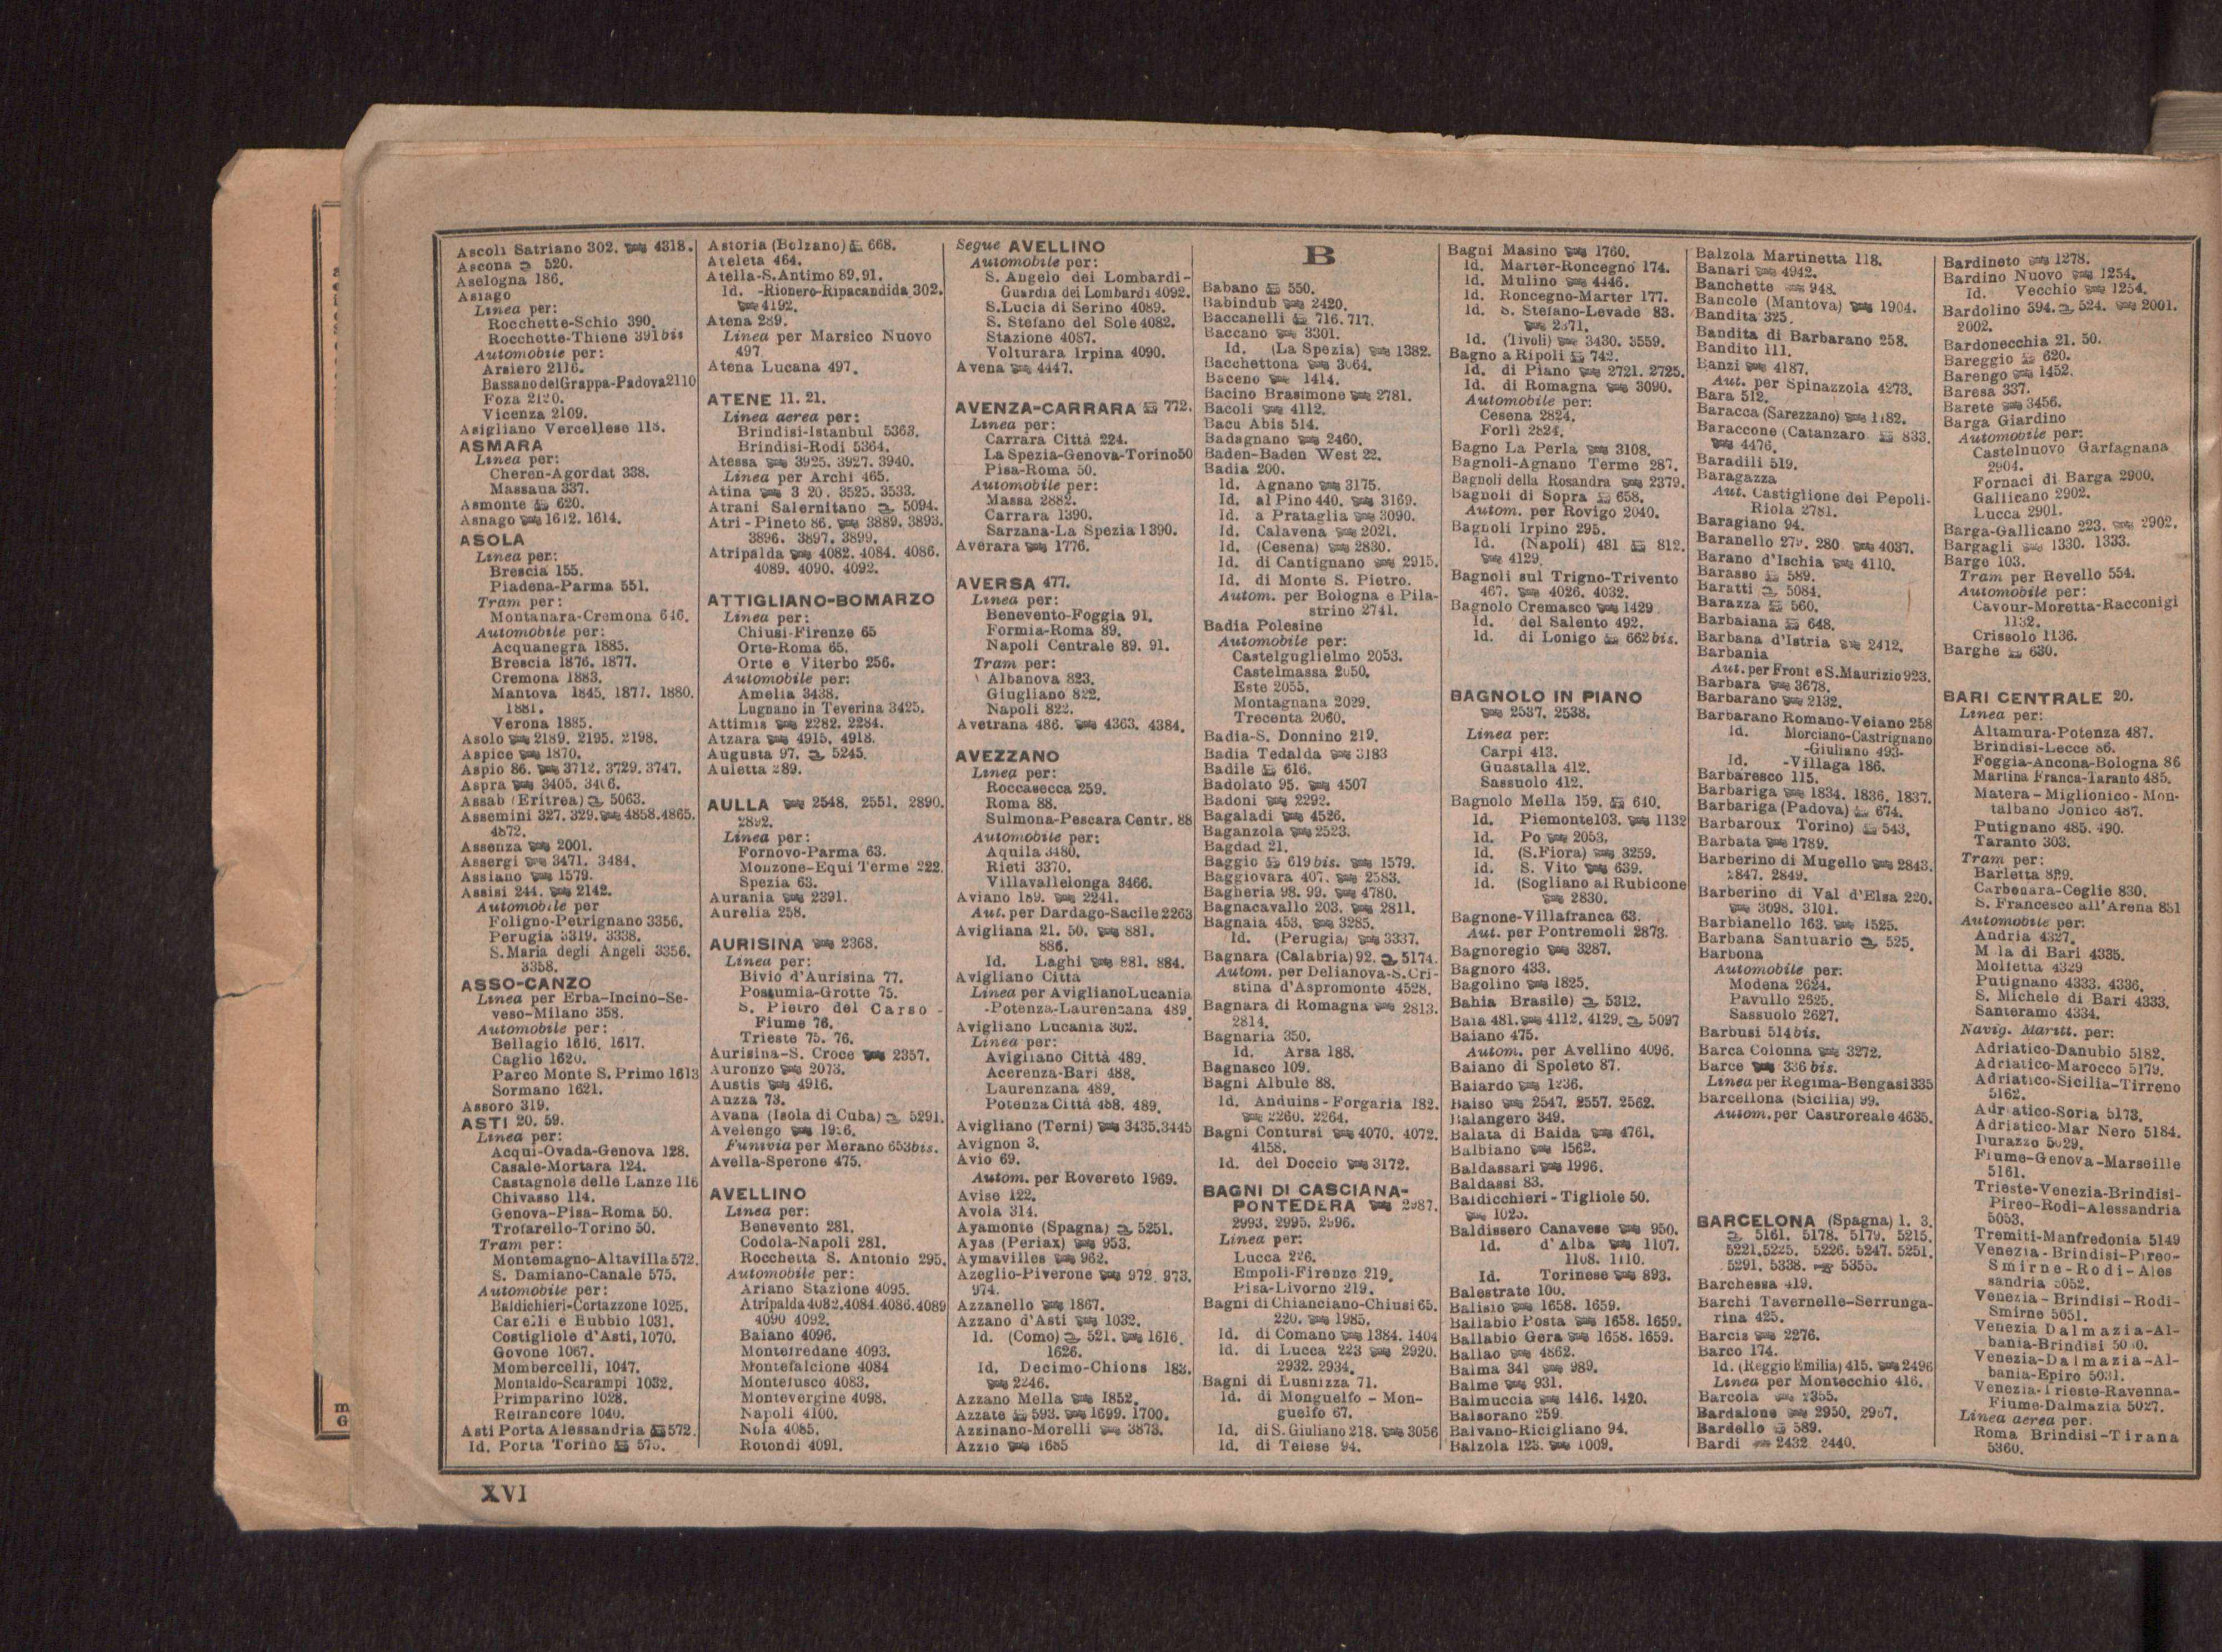 Ascoli Satriano 302. 4318.
Ascona 520.
Aselogna 186.
Asiago
Linea per:
Rocchette-Schio 390.
Rocchette-Thiene 391bis
Automobile per:
Arsiero 2116.
Bassano del Grappa-Padova 2110
Foza 2120.
Vicenza 2109.
Asigliano Vercellese 118.
ASMARA
Linea per:
Cheren-Agordat 338.
Massaua 337.
Asmonte 620.
Asnago 1612. 1614.
ASOLA
Linea per:
Brescia 155.
Piadena-Parma 551.
Tram per:
Montanara-Cremona 646.
Automobile per:
Acquanegra 1885.
Brescia 1876. 1877.
Cremona 1883.
Mantova 1845. 1877. 1880.
1881.
Verona 1885.
Asolo 2189. 2195. 2198.
Aspice 1870.
Aspio 86. 3712. 3729. 3747.
Aspra 3405.
Assab (Eritrea) 5063.
Assemini 327. 329. 4858. 4865.
4872.
Assenza 2001.
Assergi 3471. 3484.
Assiano 1579.
Assisi 244. 2142.
Automobile per
Foligno-Petrignano 3356.
Perugia 3319. 3338.
S. Maria degli Angeli 3356.
3358.
ASSO-CANZO
Linea per Erba-Incino-Se-
veso-Milano 358.
Automobile per:
Bellagio 1616. 1617.
Caglio 1620.
Parco Monte S. Primo 1613
Sormano 1621.
Assoro 319.
ASTI 20. 59.
Linea per:
Acqui-Ovada-Genova 128.
Casale-Mortara 124.
Castagnole delle Lanze 116
Chivasso 114.
Genova-Pisa-Roma 50.
Trofarello-Torino 50.
Tram per:
Montemagno-Altavilla 572.
S. Damiano-Canale 575.
Automobile per:
Baldichieri-Cortazzone 1025.
Carelli e Bubbio 1031.
Costigliole d'Asti, 1070.
Govone 1067.
Mombercelli, 1047.
Montaldo-Scarampi 1032.
Primparino 1028.
Refrancore 1040.
Asti Porta Alessandria 572.
Id. Porta Torino 575.
Astoria (Bolzano) 668.
Ateleta 464.
Atella-S. Antimo 89. 91.
Id. -Rionero-Ripacandida 302.
4192.
Atena 289.
Linea per Marsico Nuovo
497.
Atena Lucana 497.
ATENE 11. 21.
Linea aerea per:
Brindisi-Istanbul 5363.
Brindisi-Rodi 5364.
Atessa 3925. 3927. 3940.
Linea per Archi 465.
Atina 3525. 3533.
Atrani Salernitano 5094.
Atri-Pineto 86. 3889. 3893.
3896. 3897. 3899.
Atripalda 4082. 4084. 4086.
4089. 4090. 4092.
ATTIGLIANO-BOMARZO
Linea per:
Chiusi-Firenze 65
Orte-Roma 65.
Orte e Viterbo 256.
Automobile per:
Amelia 3438.
Lugnano in Teverina 3425.
Attimis 2282. 2284.
Atzara 4915. 4918.
Augusta 97. 5245.
Auletta 289.
AULLA 2548. 2551. 2890.
2892.
Linea per:
Fornovo-Parma 63.
Monzone-Equi Terme 222.
Spezia 63.
Aurania 2391.
Aurelia 258.
AURISINA 2368.
Linea per:
Bivio d'Aurisina 77.
Postumia-Grotte 75.
S. Pietro del Carso-
Fiume 76.
Trieste 75. 76.
Aurisina-S. Croce 2357.
Auronzo 2073.
Austis 4916.
Auzza 73.
Avana (Isola di Cuba) 5291.
Avelengo 1926.
Funivia per Merano 653bis.
Avella-Sperone 475.
AVELLINO
Linea per:
Benevento 281.
Codola-Napoli 281.
Rocchetta S. Antonio 295.
Automobile per:
Ariano Stazione 4095.
Atripalda 4082. 4084. 4086. 4089
4090 4092.
Baiano 4096.
Montefredane 4093.
Montefalcione 4084
Montefusco 4083.
Montevergine 4098.
Napoli 4100.
Nola 4085.
Rotondi 4091.
Segue AVELLINO
Automobile per:
S. Angelo dei Lombardi-
Guardia dei Lombardi 4092.
S. Lucia di Serino 4089.
S. Stefano del Sole 4082.
Stazione 4087.
Volturara Irpina 4090.
Avena 4447.
AVENZA-CARRARA 772.
Linea per:
Carrara Città 224.
La Spezia-Genova-Torino 50
Pisa-Roma 50.
Automobile per:
Massa 2882.
Carrara 1390.
Sarzana-La Spezia 1390.
Averara 1776.
AVERSA 477.
Linea per:
Benevento-Foggia 91.
Formia-Roma 89.
Napoli Centrale 89. 91.
Tram per:
Albanova 823.
Giugliano 822.
Napoli 822.
Avetrana 486. 4363. 4384.
AVEZZANO
Linea per:
Roccasecca 259.
Roma 88.
Sulmona-Pescara Centr. 88
Automobile per:
Aquila 3480.
Rieti 3370.
Villavallelonga 3466.
Aviano 189. 2241.
Aut. per Dardago-Sacile 2263
Avigliana 21. 50. 881.
886.
Id. Laghi 881. 884.
Avigliano Città
Linea per Avigliano Lucania
-Potenza-Laurenzana 489.
Avigliano Lucania 302.
Linea per:
Avigliano Città 489.
Acerenza-Bari 488.
Laurenzana 489.
Potenza Città 488. 489.
Avigliano (Terni) 3435. 3445
Avignon 3.
Avio 69.
Autom. per Rovereto 1969.
Avise 122.
Avola 314.
Ayamonte (Spagna) 5251.
Ayas (Periax) 953.
Aymavilles 962.
Azeglio-Piverone 972. 973.
974.
Azzanello 1867.
Azzano d'Asti 1032.
Id. (Como) 521. 1616.
1626.
Id. Decimo-Chions 183.
2246.
Azzano Mella 1852.
Azzate 593. 1699. 1700.
Azzinano-Morelli 3873.
Azzio 1685
B
Babano 550.
Babindub 2420.
Baccanelli 716. 717.
Baccano 3301.
Id. (La Spezia) 1382.
Bacchettona 3064.
Baceno 1414.
Bacino Brasimone 2781.
Bacoli 4112.
Bacu Abis 514.
Badagnano 2460.
Baden-Baden West 22.
Badia 200.
Id. Agnano 3175.
Id. al Pino 440. 3169.
Id. a Prataglia 3090.
Id. Calavena 2021.
Id. (Cesena) 2830.
Id. di Cantignano 2915.
Id. di Monte S. Pietro.
Autom. per Bologna e Pila-
strino 2741.
Badia Polesine
Automobile per:
Castelguglielmo 2053.
Castelmassa 2050.
Este 2055.
Montagnana 2029.
Trecenta 2060.
Badia-S. Donnino 219.
Badia Tedalda 3183
Badile 616.
Badolato 95. 4507
Badoni 2292.
Bagaladi 4526.
Baganzola 2523.
Bagdad 21.
Baggio 619bis. 1579.
Baggiovara 407. 2583.
Bagheria 98. 99. 4780.
Bagnacavallo 203. 2811.
Bagnaia 453. 3285.
Id. (Perugia) 3337.
Bagnara (Calabria) 92. 5174.
Autom. per Delianova-S. Cri-
stina d'Aspromonte 4528.
Bagnara di Romagna 2813.
2814.
Bagnaria 350.
Id. Arsa 188.
Bagnasco 109.
Bagni Albule 88.
Id. Anduins-Forgaria 182.
2260. 2264.
Bagni Contursi 4070. 4072.
4158.
Id. del Doccio 3172.
BAGNI DI CASCIANA-
PONTEDERA 2987.
2993. 2995. 2996.
Linea per:
Lucca 226.
Empoli-Firenze 219.
Pisa-Livorno 219.
Bagni di Chianciano-Chiusi 65.
220. 1985.
Id. di Comano 1384. 1404
Id. di Lucca 223 2920.
2932. 2934.
Bagni di Lusnizza 71.
Id. di Monguelfo - Mon-
guelfo 67.
Id. di S. Giuliano 218. 3056
Id. di Telese 94.
Bagni Masino 1760.
Id. Marter-Roncegno 174.
Id. Mulino 4446.
Id. Roncegno-Marter 177.
Id. S. Stefano-Levade 83.
2371.
Id. (Tivoli) 3430. 3559.
Bagno a Ripoli 742.
Id. di Piano 2721. 2725.
Id. di Romagna 3090.
Automobile per:
Cesena 2824.
Forlì 2824.
Bagno La Perla 3108.
Bagnoli-Agnano Terme 287.
Bagnoli della Rosandra 2379.
Bagnoli di Sopra 658.
Autom. per Rovigo 2040.
Bagnoli Irpino 295.
Id. (Napoli) 481 812.
4129.
Bagnoli sul Trigno-Trivento
467. 4026. 4032.
Bagnolo Cremasco 1429.
Id. del Salento 492.
Id. di Lonigo 662bis.
BAGNOLO IN PIANO
2537. 2538.
Linea per:
Carpi 413.
Guastalla 412.
Sassuolo 412.
Bagnolo Mella 159. 640.
Id. Piemonte 103. 1132
Id. Po 2053.
Id. (S. Fiora) 3259.
Id. S. Vito 639.
Id. (Sogliano al Rubicone
2830.
Bagnone-Villafranca 63.
Aut. per Pontremoli 2873.
Bagnoregio 3287.
Bagnoro 433.
Bagolino 1825.
Bahia Brasile) 5312.
Baia 481. 4112. 4129. 5097
Baiano 475.
Autom. per Avellino 4096.
Baiano di Spoleto 87.
Baiardo 1236.
Baiso 2547. 2557. 2562.
Balangero 349.
Balata di Baida 4761.
Balbiano 1562.
Baldassari 1996.
Baldassi 83.
Baldicchieri-Tigliole 50.
1025.
Baldissero Canavese 950.
Id. d'Alba 1107.
1108. 1110.
Id. Torinese 893.
Balestrate 100.
Balisio 1658. 1659.
Ballabio Posta 1658. 1659.
Ballabio Gera 1658. 1659.
Ballao 4862.
Balma 341 989.
Balme 931.
Balmuccia 1416. 1420.
Balsorano 259.
Balvano-Ricigliano 94.
Balzola 123. 1009.
Balzola Martinetta 118.
Banari 4942.
Banchette 948.
Bancole (Mantova) 1904.
Bandita 325.
Bandita di Barbarano 258.
Bandito 111.
Banzi 4187.
Aut. per Spinazzola 4273.
Bara 512.
Baracca (Sarezzano) 1182.
Baraccone (Catanzaro 833.
4476.
Baradili 519.
Baragazza
Aut. Castiglione dei Pepoli-
Riola 2781.
Baragiano 94.
Baranello 279. 280. 4037.
Barano d'Ischia 4110.
Barasso 589.
Baratti 5084.
Barazza 560.
Barbaiana 648.
Barbana d'Istria 2412.
Barbania
Aut. per Front e S. Maurizio 923.
Barbara 3678.
Barbarano 2132.
Barbarano Romano-Veiano 258
Id. Morciano-Castrignano
-Giuliano 493.
Id. -Villaga 186.
Barbaresco 115.
Barbariga 1834. 1836. 1837.
Barbariga (Padova) 674.
Barbaroux Torino) 543.
Barbata 1789.
Barberino di Mugello 2843.
2847. 2849.
Barberino di Val d'Elsa 220.
3098. 3101.
Barbianello 163. 1525.
Barbana Santuario 525.
Barbona
Automobile per:
Modena 2624.
Pavullo 2625.
Sassuolo 2627.
Barbusi 514bis.
Barca Colonna 3272.
Barce 336bis.
Linea per Regima-Bengasi 335
Barcellona (Sicilia) 99.
Autom. per Castroreale 4635.
BARCELONA (Spagna) 1. 3.
5161. 5178. 5179. 5215.
5221. 5225. 5226. 5247. 5251.
5291. 5338. 5355.
Barchessa 419.
Barchi Tavernelle-Serrunga-
rina 425.
Barcis 2276.
Barco 174.
Id. (Reggio Emilia) 415. 2496
Linea per Montecchio 416.
Barcola 2355.
Bardalone 2950. 2967.
Bardello 589.
Bardi 2432 2440.
Bardineto 1278.
Bardino Nuovo 1254.
Id. Vecchio 1254.
Bardolino 394. 524. 2001.
2002.
Bardonecchia 21. 50.
Bareggio 620.
Barengo 1452.
Baresa 337.
Barete 3456.
Barga Giardino
Automobile per:
Castelnuovo Garfagnana
2904.
Fornaci di Barga 2900.
Gallicano 2902.
Lucca 2901.
Barga-Gallicano 223. 2902.
Bargagli 1330. 1333.
Barge 103.
Tram per Revello 554.
Automobile per:
Cavour-Moretta-Racconigi
1132.
Crissolo 1136.
Barghe 630.
BARI CENTRALE 20.
Linea per:
Altamura-Potenza 487.
Brindisi-Lecce 86.
Foggia-Ancona-Bologna 86
Martina Franca-Taranto 485.
Matera-Miglionico-Mon-
talbano Jonico 487.
Putignano 485. 490.
Taranto 303.
Tram per:
Barletta 829.
Carbonara-Ceglie 830.
S. Francesco all'Arena 831
Automobile per:
Andria 4327.
M la di Bari 4335.
Molfetta 4329
Putignano 4333. 4336.
S. Michele di Bari 4333.
Santeramo 4334.
Navig. Maritt. per:
Adriatico-Danubio 5182.
Adriatico-Marocco 5179.
Adriatico-Sicilia-Tirreno
5162.
Adriatico-Soria 5173.
Adriatico-Mar Nero 5184.
Durazzo 5029.
Fiume-Genova-Marseille
5161.
Trieste-Venezia-Brindisi-
Pireo-Rodi-Alessandria
5053.
Tremiti-Manfredonia 5149
Venezia-Brindisi-Pireo-
Smirne-Rodi-Ales
sandria 5052.
Venezia-Brindisi-Rodi-
Smirne 5051.
Venezia Dalmazia-Al-
bania-Brindisi
Venezia-Dalmazia-Al-
bania-Epiro 5031.
Venezia-Trieste-Ravenna-
Fiume-Dalmazia 5027.
Linea aerea per.
Roma Brindisi-Tirana
5360.
XVI